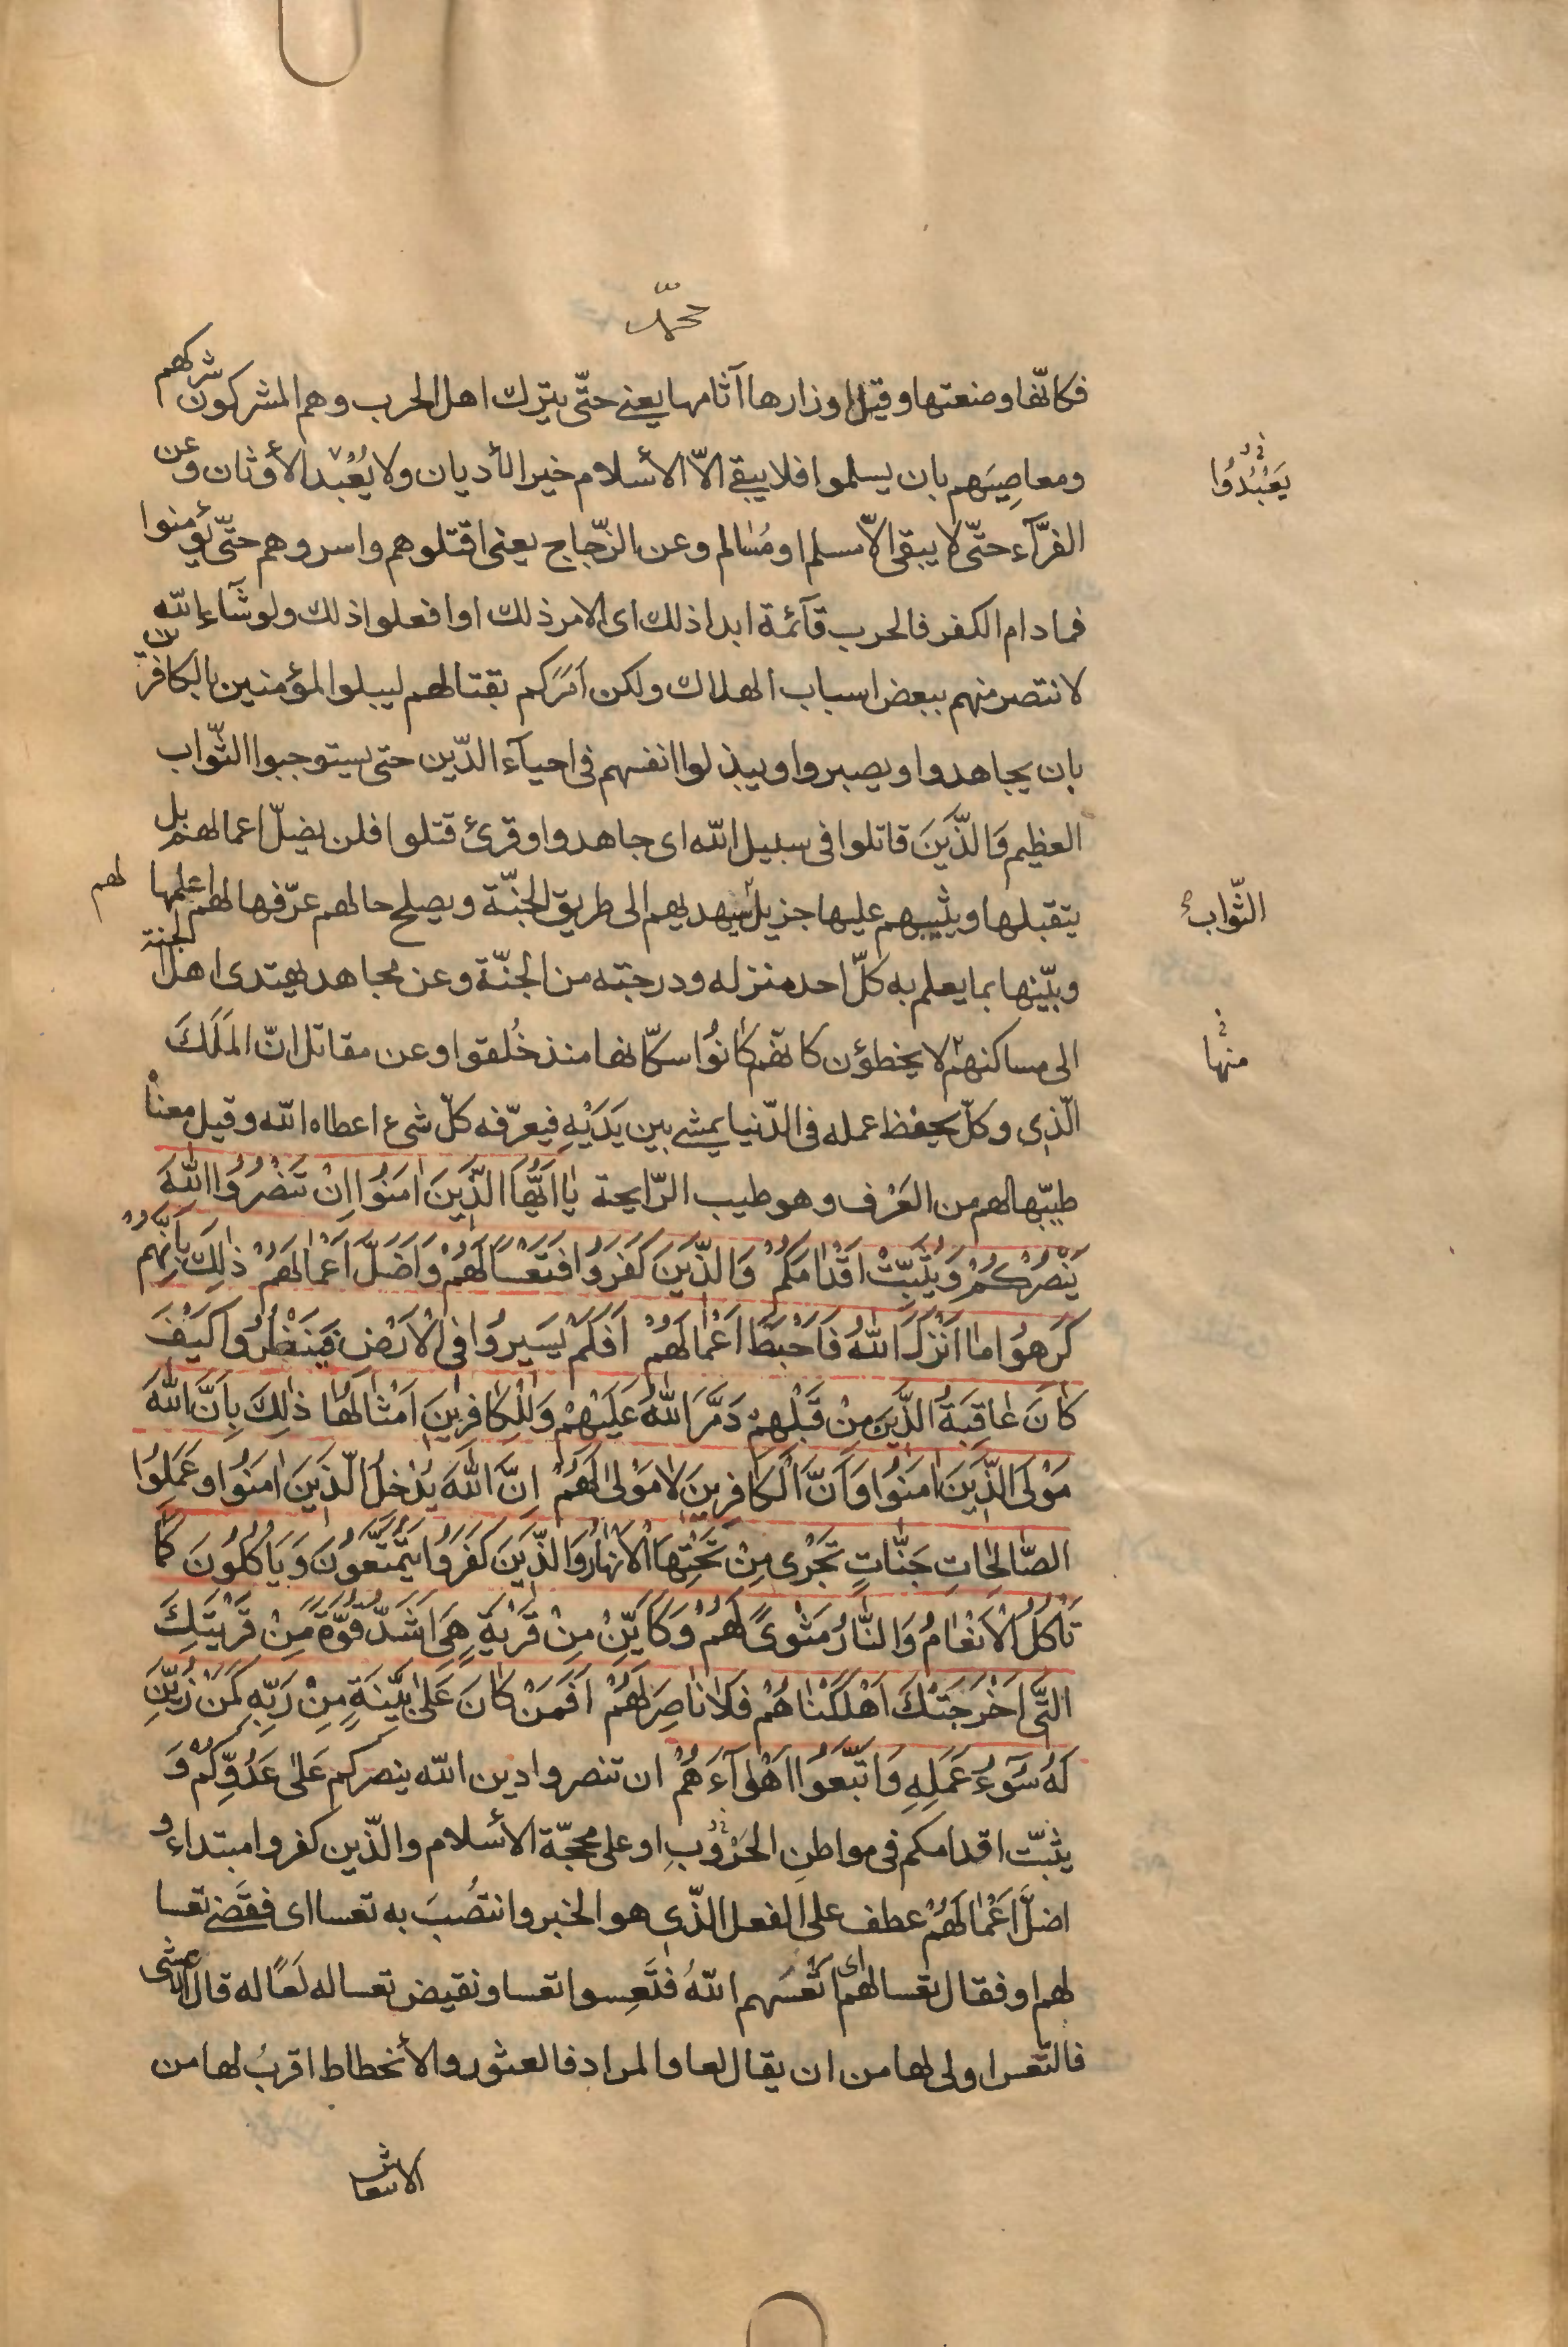 محمّد
فكانّها وضعتها وقيل اوزارها آثامها يعنى حتّى يترك اهل الحرب وهم المشركون شركهم
ومعاصيَهم بان يسلموا فلا يبقى الاّ الأسلام خير الأديان ولا يُعْبد الأوثان وعن
يَعْبُدُوا
الفرّآء حتّى لا يبقى الاّ مسلم او مُسٰالم وعن الزّجّاج يعنى اقتلوهم واسروهم حتّى يؤمنوا
فما دام الكفر فالحرب قآئمة ابدا ذلك اى الامر ذلك او افعلوا ذلك ولو شآء الله
لانتصر منهم ببعض اسباب الهلاك ولكن امركم بقتالهم ليبلو المؤمنين بالكافرين
بان يجاهدوا ويصبروا ويبذلوا انفسهم فى احيآء الدّين حتى يستوجبوا الثّواب
العظيم وَالذَّينَ قاتلوا فى سبيل الله اى جاهدوا وقرئ قتلوا فلن يضلّ اعمالهم بل
يتقبلها ويثيبهم عليها جزيل سيهديهم الى طريق الجنّة ويصلح حالهم عرّفها لهم اعلمها لهم
الثّواب
وبيّنها بما يعلم به كلّ احد منزله ودرجته من الجنّة وعن مجاهد يهتدى اهل الجنة
الى مساكنهم لا يخطؤن كانهم كانُوا سكّانها منذ خُلقوا وعن مقاتل انّ المَلَكَ
منها
الّذى وكلّ بحفظ عمله فى الدّنيا يمشى بين يَدَيْهِ فيعرّفه كلّ شىء اعطاه الله وقيل معناه
طيبّها لهم من العَرْف وهو طيب الرّايحة يٰا اَيُّهَا الذَّينَ اٰمَنُوا اِنْ تَنْصُرُوا اللّٰهَ
يَنْصُرْكُمْ وَيُثَبِّتْ اَقْدٰامَكُمْ وَالذَّينَ كَفَرُوا فَتَعْسًا لَهُمْ وَاَضَلَّ اَعْمٰالَهُمْ ذٰلِكَ بِاَنَّهُمْ
كَرِهُوا مٰا اَنْزَلَ اللّٰهُ فَاَحْبَطَ اَعْمٰالَهُمْ اَفَلَمْ يَسيرُوا فِى الْاَرْضِ فَيَنْظُرُوا كَيْفَ
كٰانَ عٰاقِبَةُ الذَّينَ مِنْ قَبْلِهِمْ دَمَّرَ اللّٰهُ عَلَيْهِمْ وَلِلْكٰافِرينَ اَمْثٰالُهٰا ذٰلِكَ بِاَنَّ اللّٰهَ
مَوْلَى الذَّينَ اٰمَنُوا وَاَنَّ الْكٰافِرينَ لٰا مَوْلىٰ لَهُمْ اِنَّ اللّٰهَ يُدْخِلُ الّذَينَ اٰمَنُوا وَعَمِلُوا
الصّٰالِحٰاتِ جَنّٰاتٍ تَجْرى مِنْ تَحْتِهَا الْاَنْهٰارُ وَالذَّينَ كَفَرُوا يَتَمَتَّعُونَ وَيَاْكُلُونَ كَمٰا
تَاْكُلُ الْاَنْعٰامُ وَالنّٰارُ مَثْوىً لَهُمْ وَكَاَيِّنْ مِنْ قَرْيَةٍ هِىَ اَشَدُّ قُوَّةً مِنْ قَرْيَتِكَ
الَّتى اَخْرَجَتْكَ اَهْلَكْنٰاهُمْ فَلٰا نٰاصِرَ لَهُمْ اَفَمَنْ كٰانَ عَلىٰ بَيِّنَةٍ مِنْ رَبِّهِ كَمَنْ زُيِّنَ
لَهُ سُوٓءُ عَمَلِهِ وَاتَّبَعُوا اَهْوٰآءَهُمْ ان تنصروا دين الله ينصركم عَلىٰ عَدُوِّكُمْ وَ
يثبّت اقدامكم فى مواطن الحُرْوُبِ او على محجّة الأسلام والّذين كفروا مبتداء و
اضلَّ اَعْمٰالَهُمْ عطف على الفعل الذّى هو الخبر وانتصُبَ به تعسا اى فقضى تعسا
لهم او فقال تعسا لهم اى اتعسَهم اللهُ فَتَعِسوا تعسا ونقيض تعسا له لَعًا له قال الاعشى
فالتّعس اولى لها من ان يقال لعا والمراد فالعثور والأنحطاط اقربُ لها من
الانتعاش